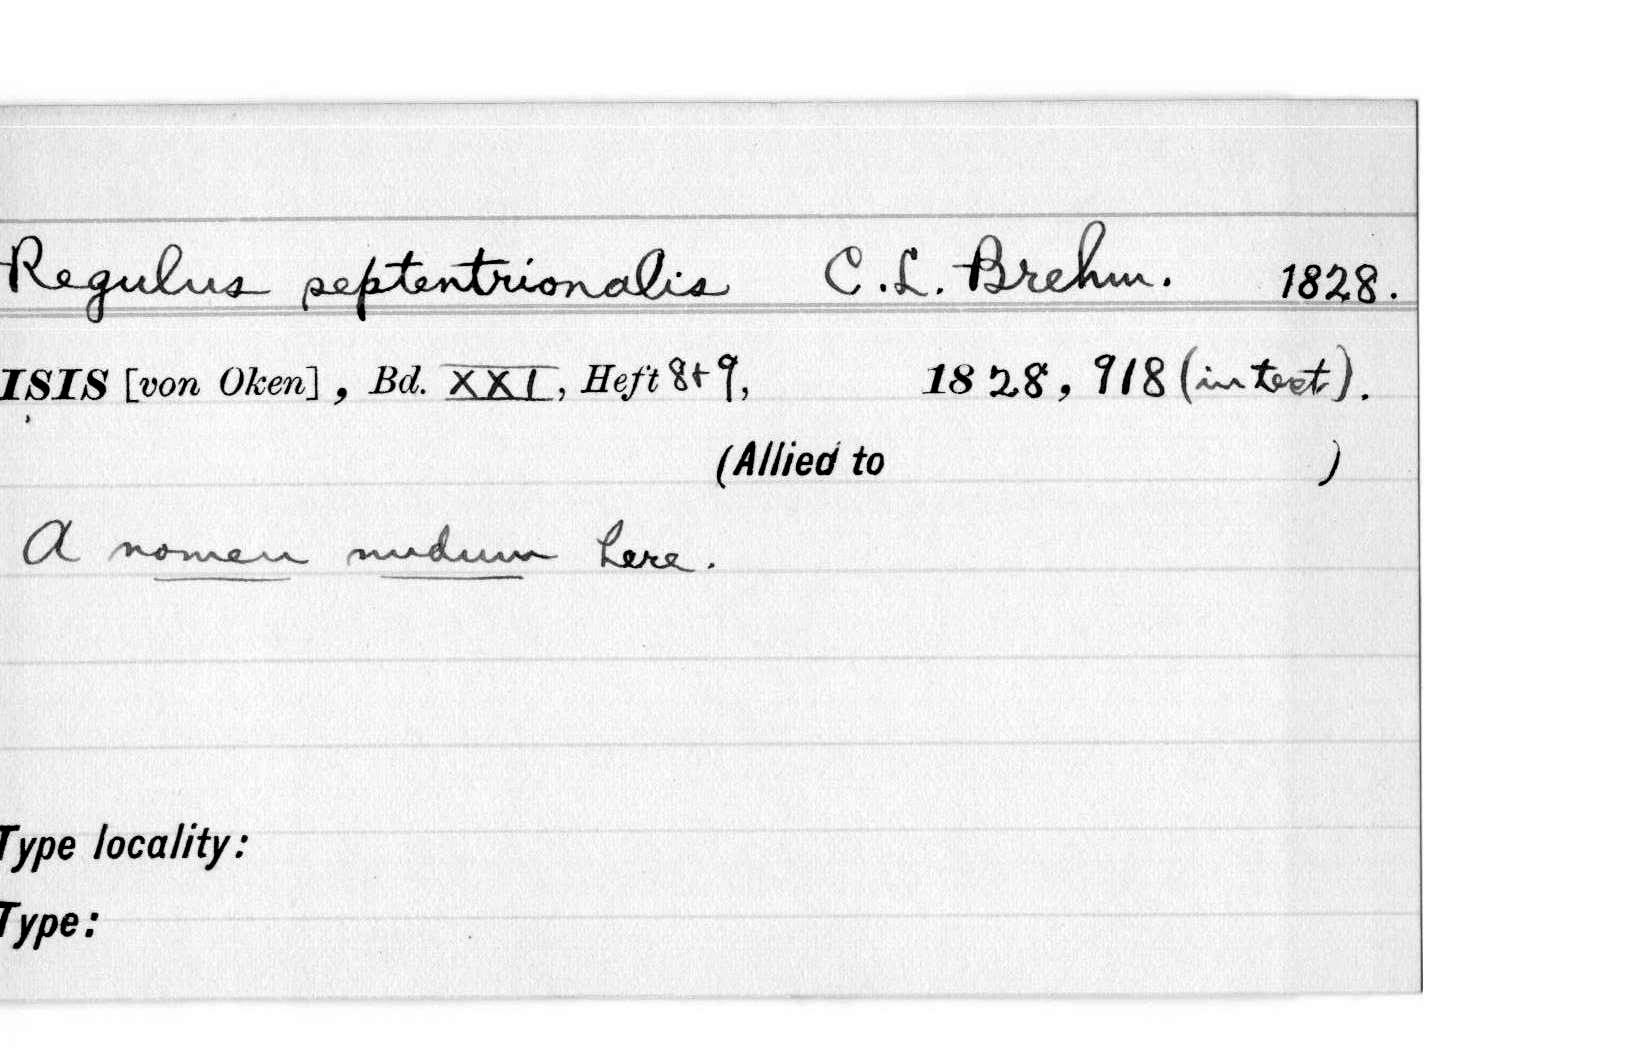 Regulus septentrionalis C.L. Brehm. 1828.
ISIS [von Oken], Bd. XXI, Heft 8+9, 1828, 918 (in text).
(Allied to )
A nomen nudum here.
Type locality:
Type: